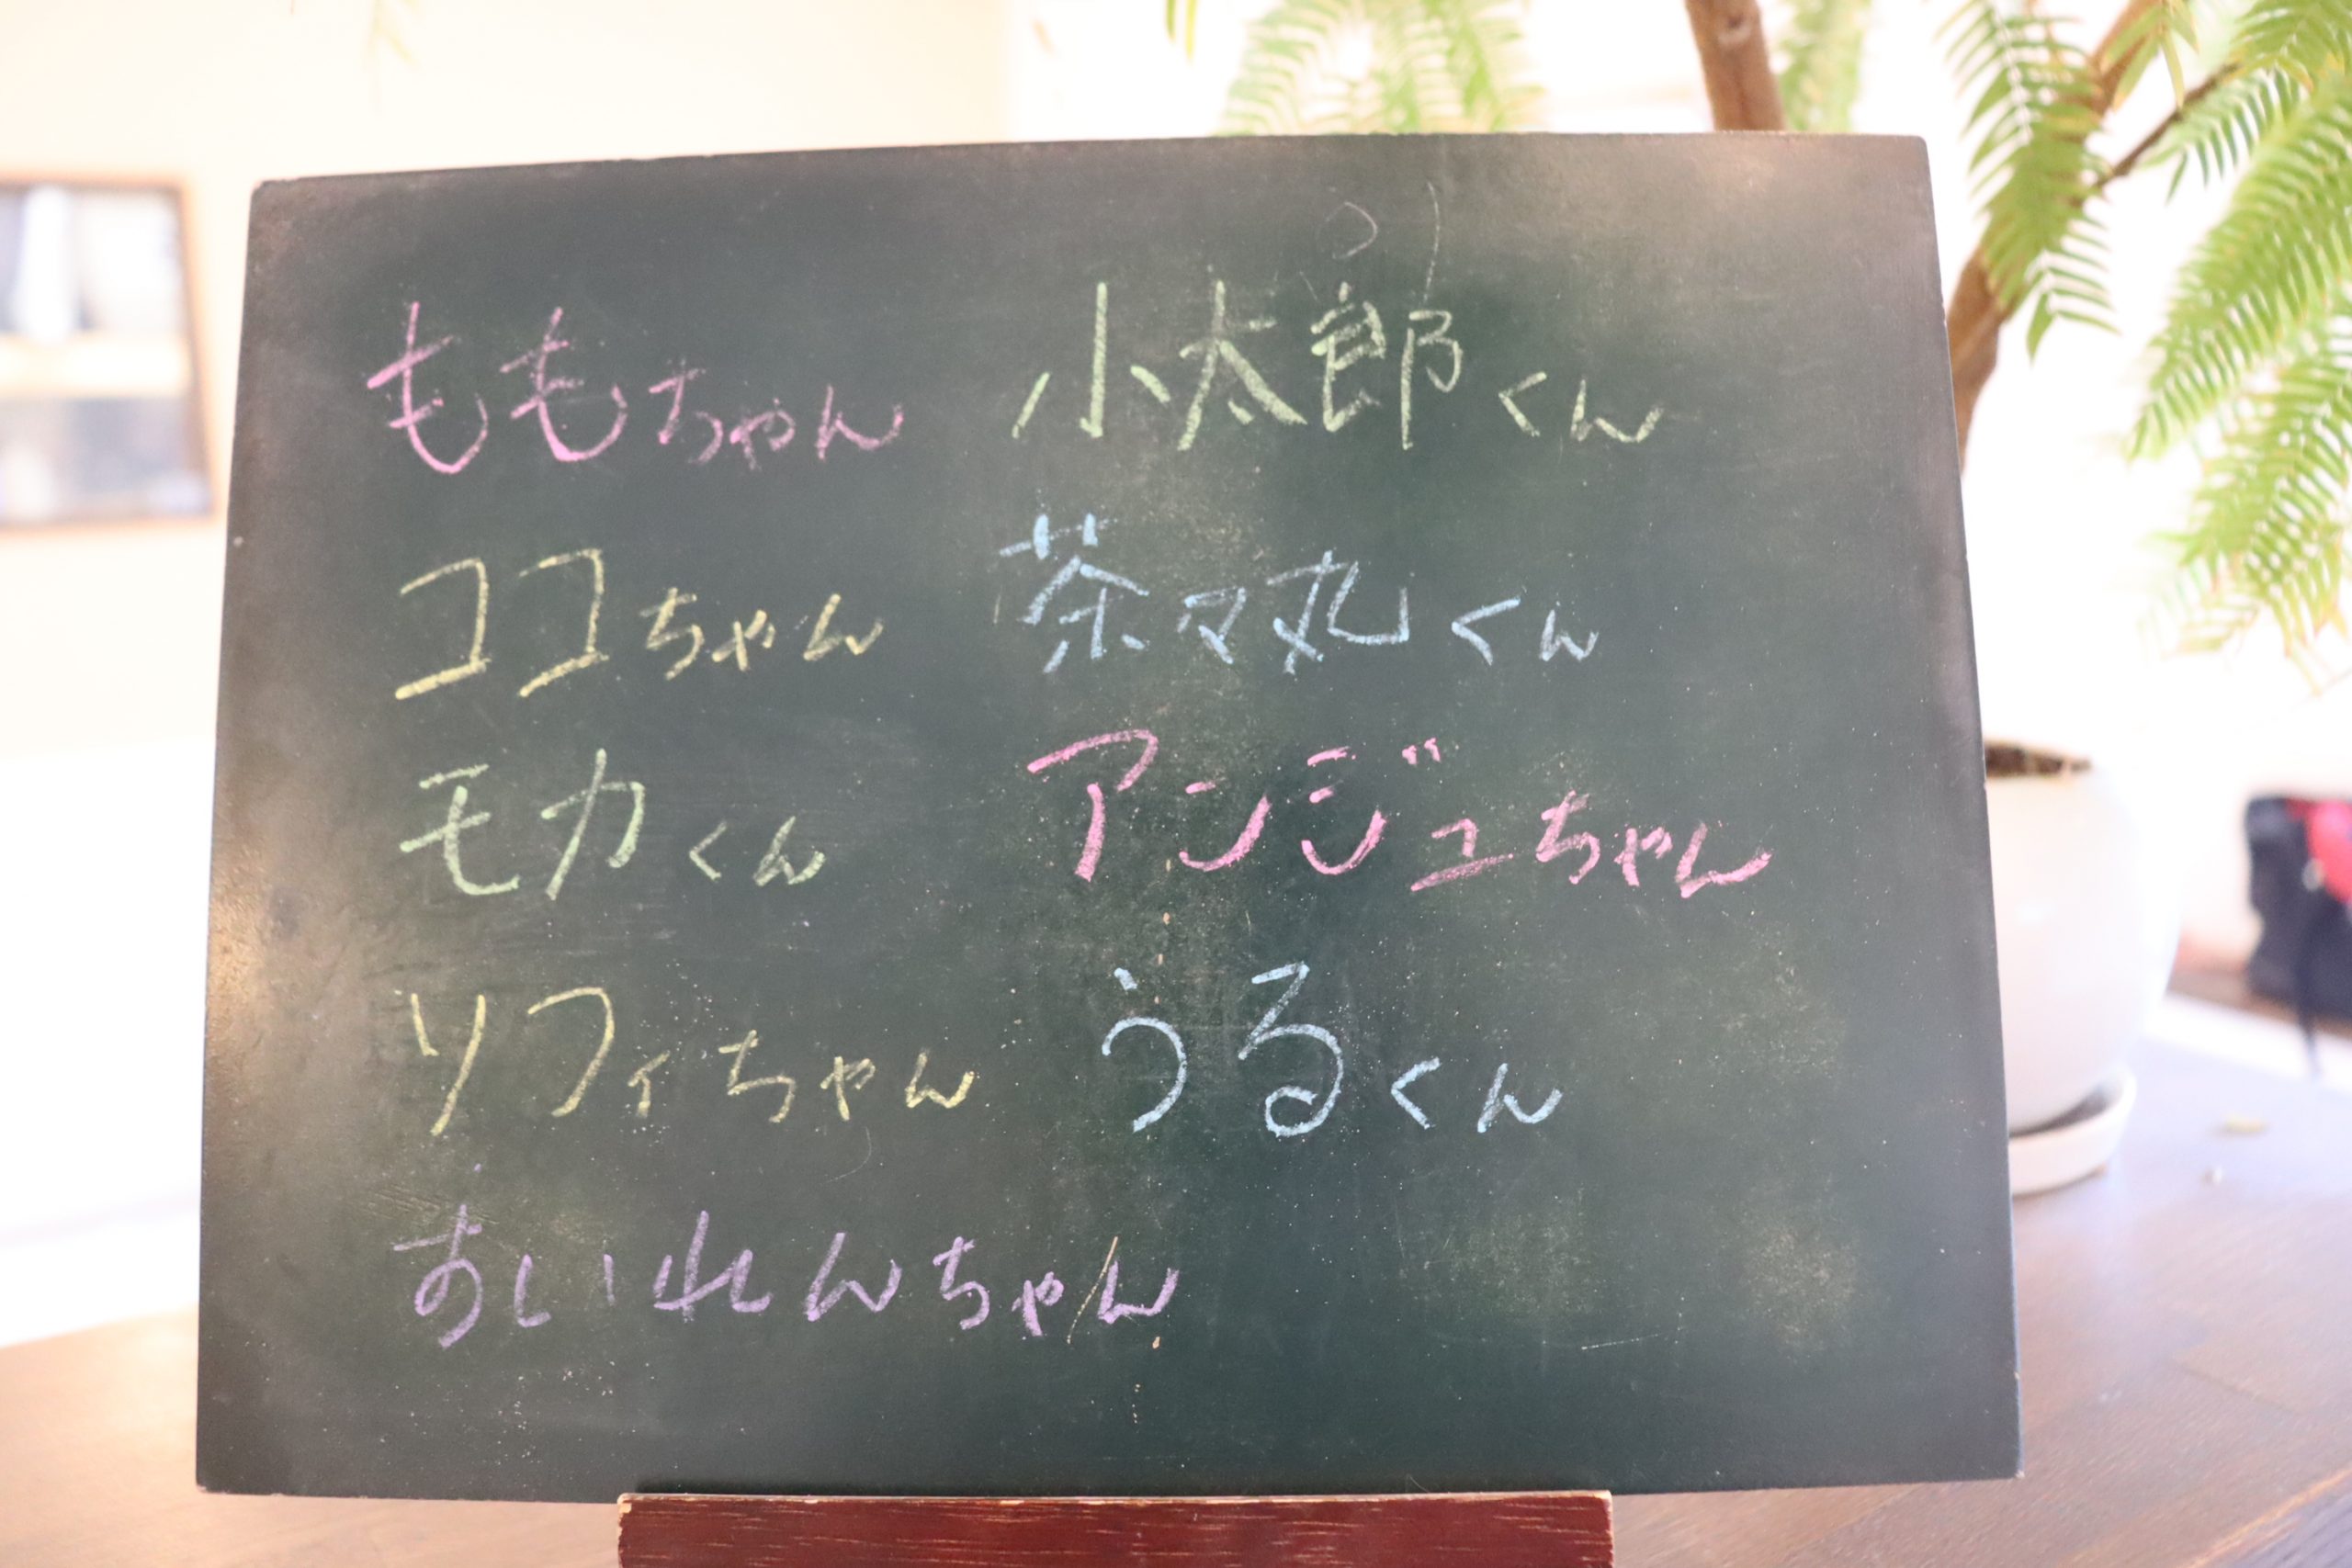 ももちゃん 小太郎くん
ココちゃん 茶々丸くん
モカくん アンジュちゃん
ソフィちゃん うるくん
すいれんちゃん